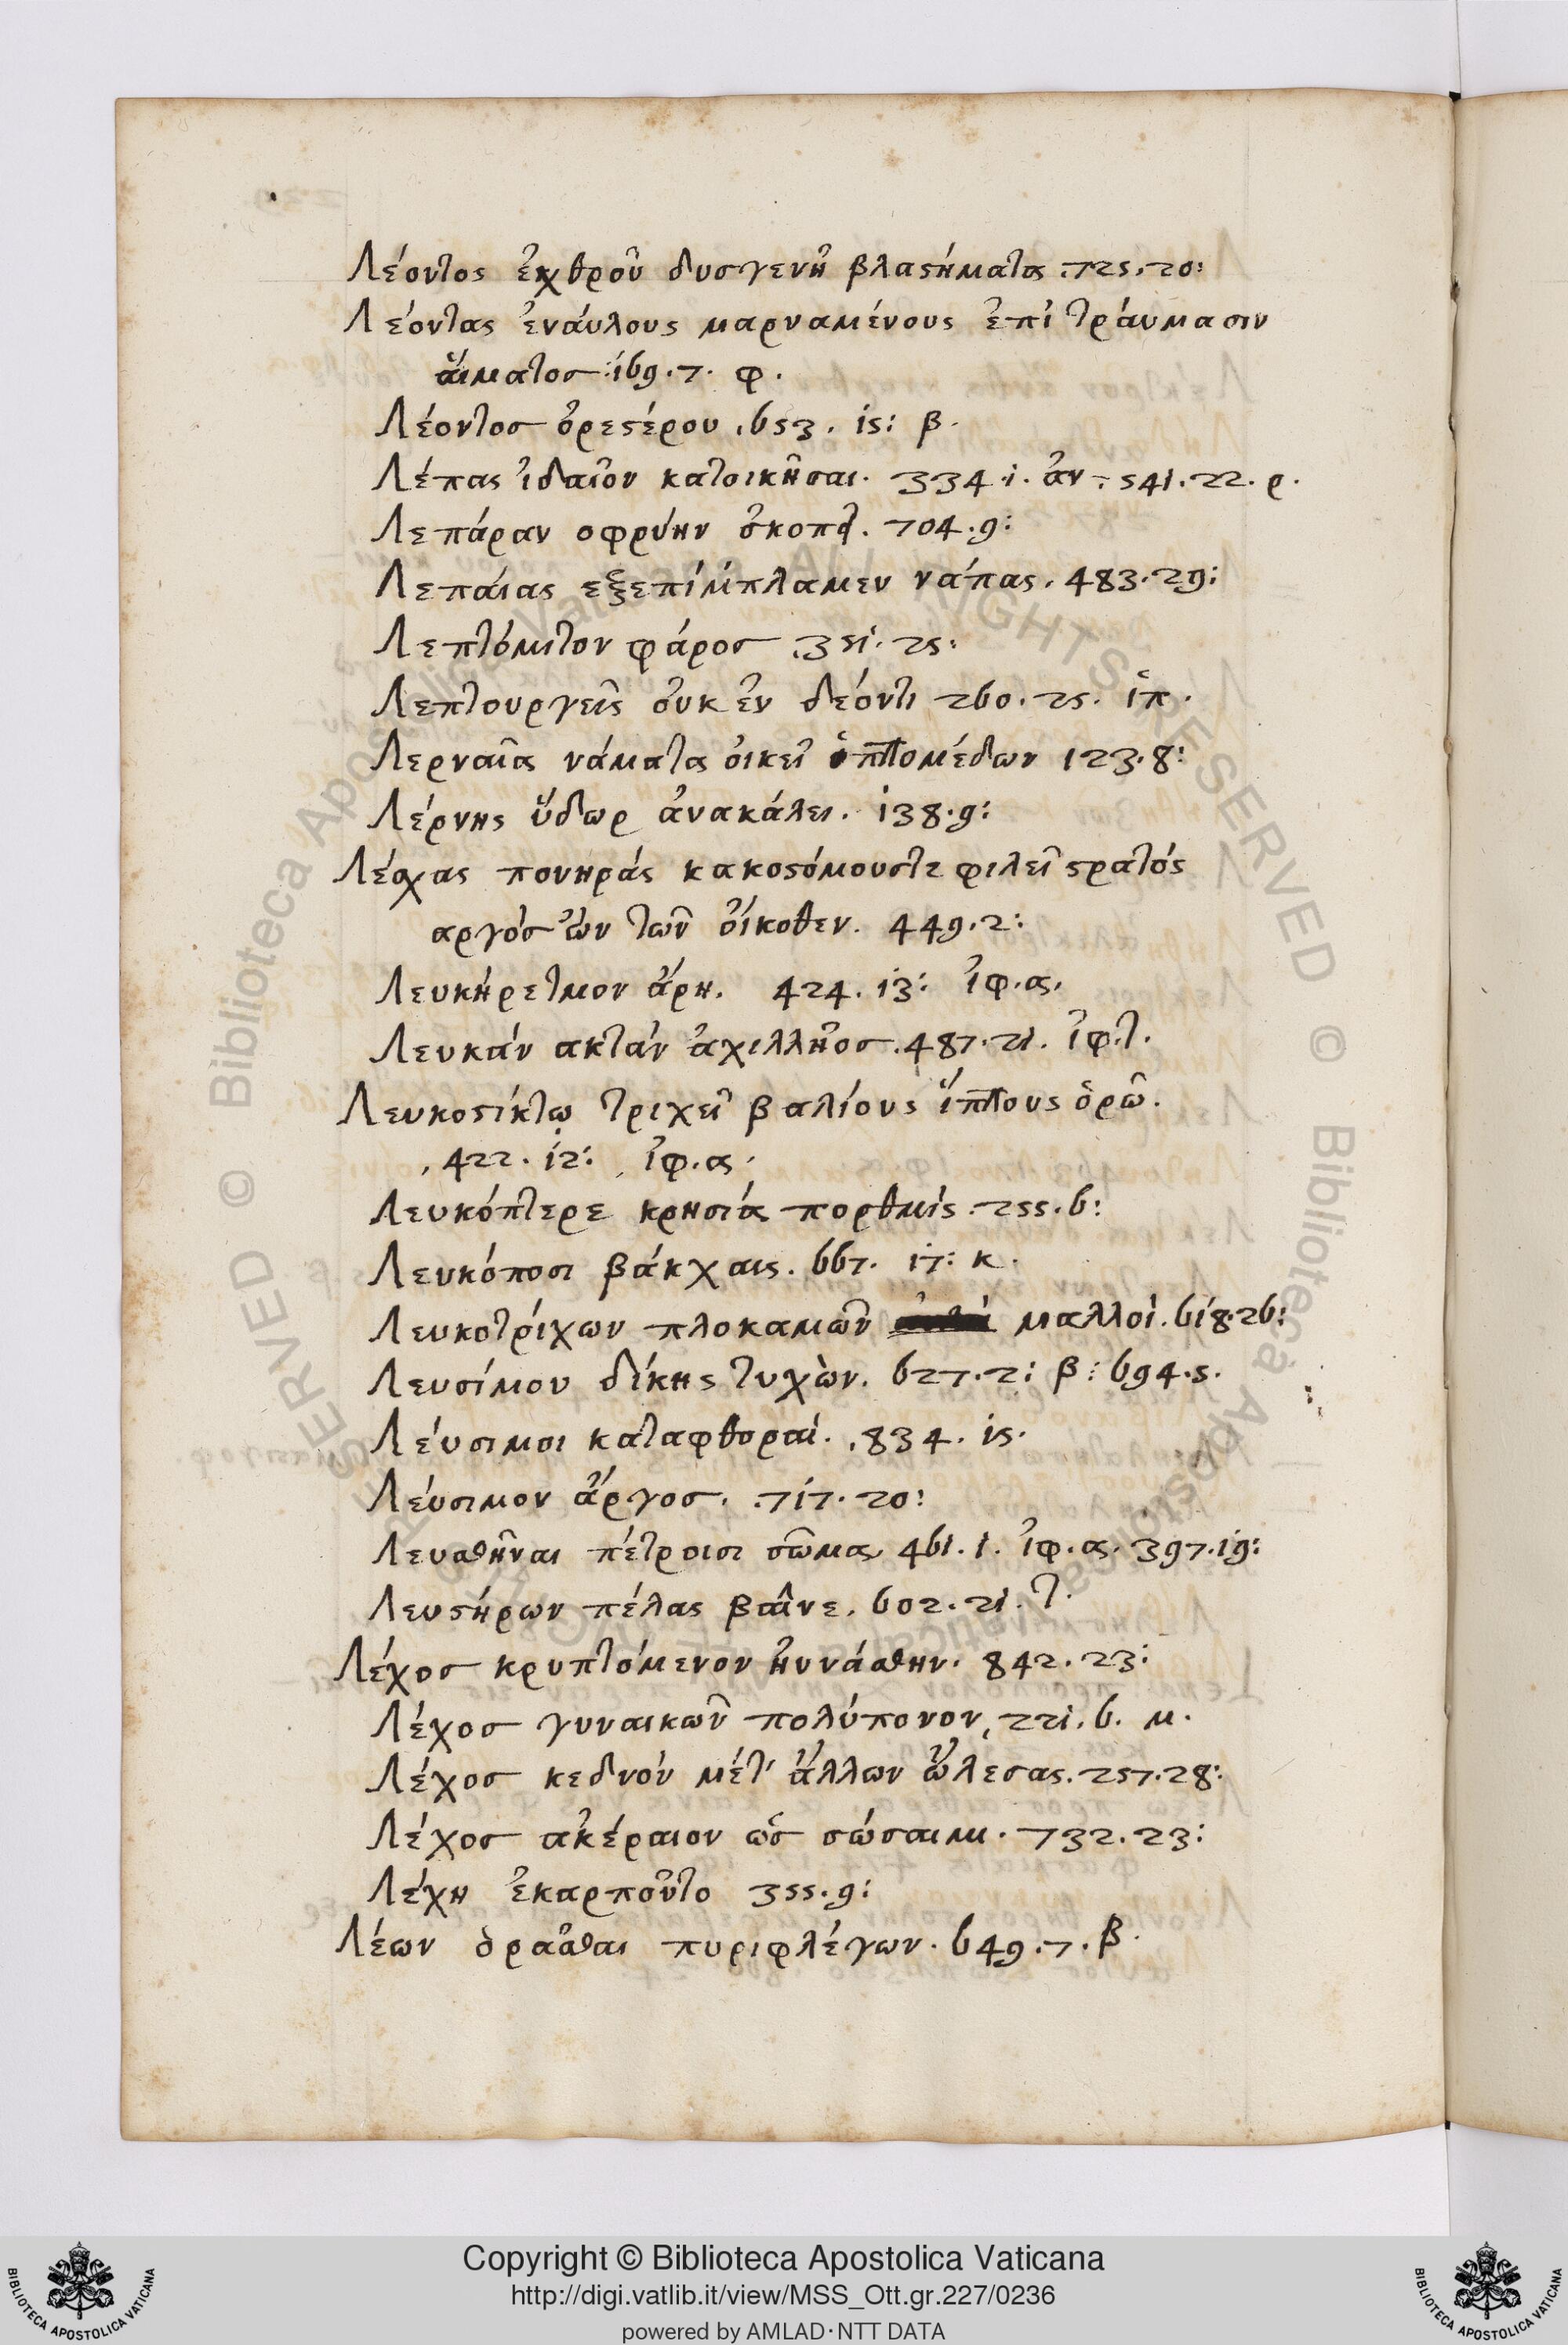 Λέοντος ἐχθροῦ δυσγενῆ βλαϛήματα .725.20:
Λέοντας ἐναύλους μαρναμένους ἐπὶ τράυμασιν
ἅιματος .169.7. φ.
Λέοντος ὀρεϛέρου .653. 15: β.
Λέπας ἰδαῖον κατοικῆσαι. 334.1. ἀν. 541.22. ρ.
Λεπάραν οφρύην 704.9:
Λεπάιας εξεπίμπλαμεν νάπας. 483.29:
Λεπτόμιτον φάρος .351.25:
Λεπτουργεῖς ὀυκ ἐν δεόντι 260.25. ἱπ.
Λερναῖα νάματα ὀικεῖ ἱππομέδων 123.8:
Λέρνης ὕδωρ ἀνακάλει. 138.9:
Λέσχας πονηράς κακοϛόμουστε φιλεῖ ϛρατός
αργός ὢν τῶν ὄικοθεν. 449.2:
Λευκήρετμον ἄρη. 424. 13: ἰφ.α.
Λευκάν ακτάν ἀχιλλῆος .487.21. ἰφ.τ.
Λευκοϛίκτῳ τριχεῖ βαλίους ἵππους ὁρῶ.
.422. 12: ἰφ.α.
Λευκόπτερε κρησία πορθμίς .255.6:
Λευκόποσι βάκχαις. 667. 17: κ.
Λευκοτρίχων πλοκαμῶν μαλλοί. 618.26:
Λευσίμου δίκης τυχὼν. 627.2: β: 694.5.
Λέυσιμοι καταφθοραί. .834. 15.
Λέυσιμον ἄργος. .717.20:
Λευσθῆναι πέτροισι σῶμα 461.1. ἰφ.α. 397.19:
Λευϛήρων πέλας βαῖνε. 602.21. τ.
Λέχος κρυπτόμενον ἠυνάσθην. 842.23:
Λέχος γυναικῶν πολύπονον, 221.6. μ.
Λέχος κεδνόν μέτ' ἄλλων ὤλεσας. 257.28:
Λέχος ακέραιον ὡς σώσαιμι. 732.23:
Λέχη ἐκαρποῦτο 355.9:
Λέων ὁραῦσθαι πυριφλέγων. 649.7. β.
Copyright © Biblioteca Apostolica Vaticana
http://digi.vatlib.it/view/MSS_Ott.gr.227/0236
powered by AMLAD·NTT DATA